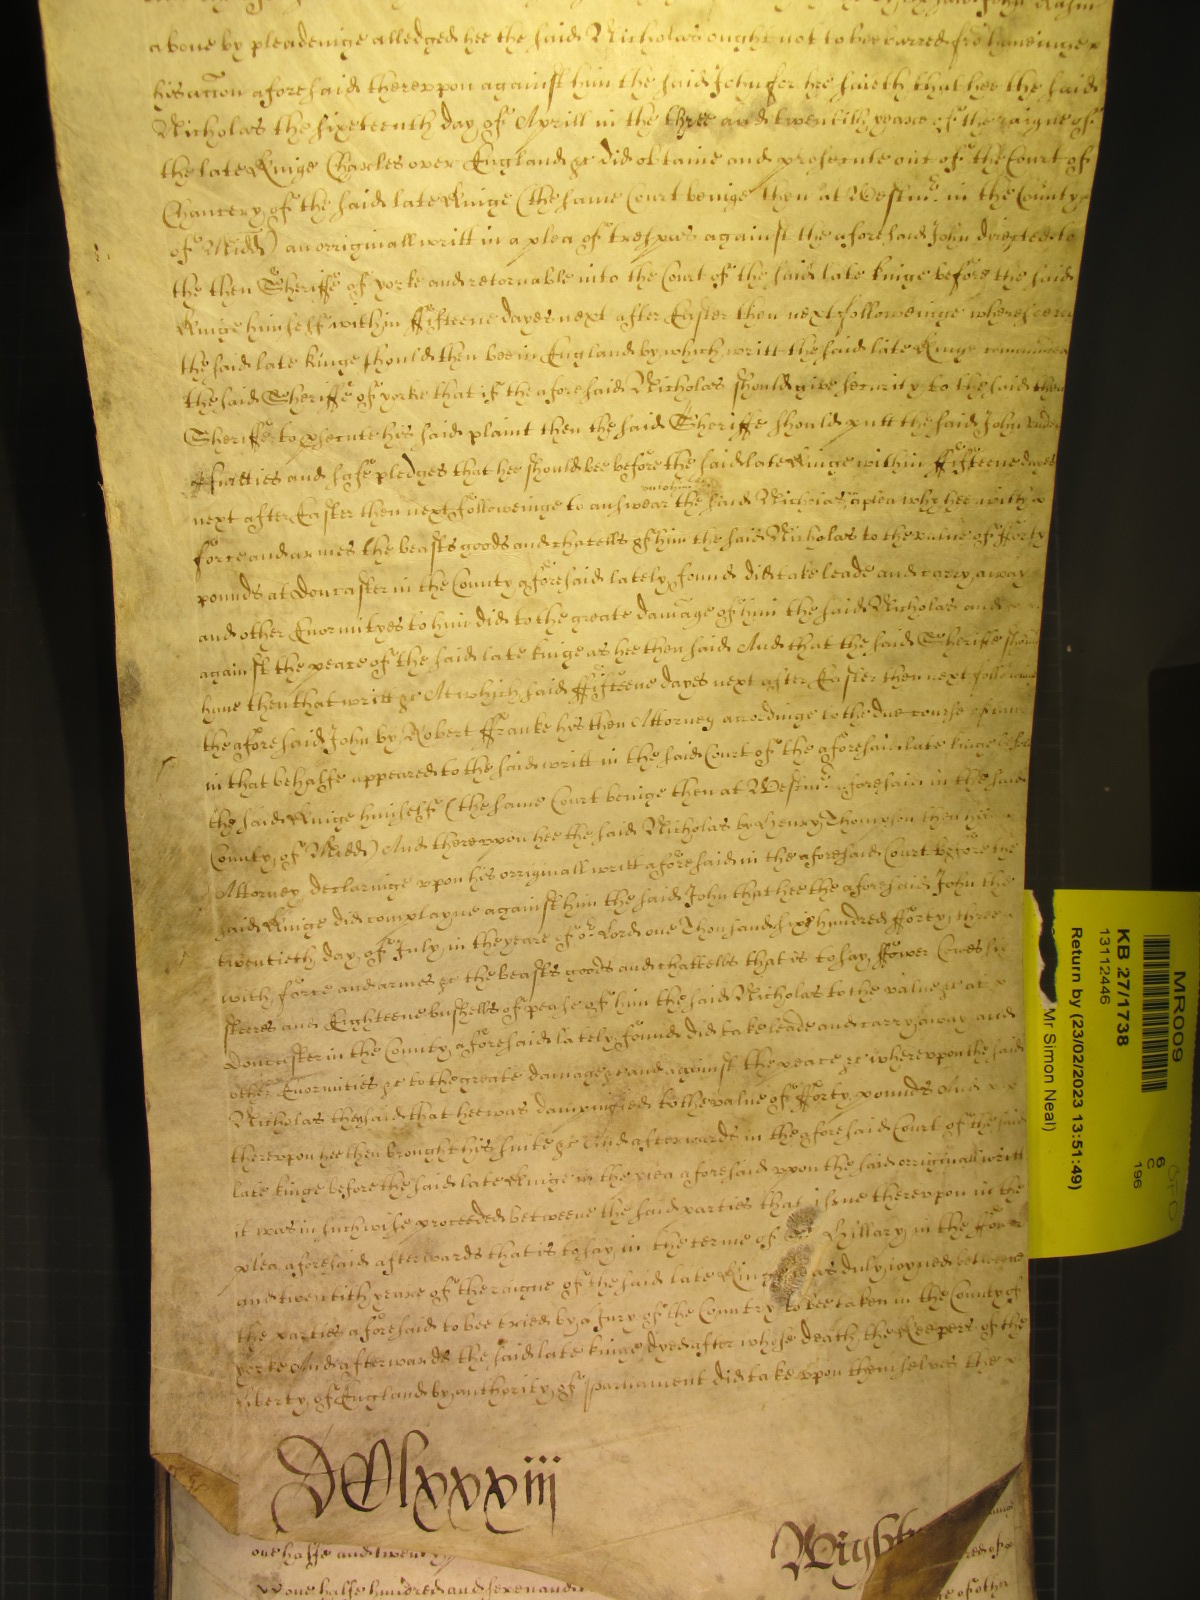 above by pleadeinge alledged hee the said Nicholas ought not to bee barred fro haveinge
his accon aforesaid thereupon against him the said John for hee saieth that hee the said
Nicholas the sixteenth day of Aprill in the three and twentith yeare of the raigne of
the late Kinge Charles over England &c did obtaine and prosecute out of the Court of
Chancery of the said late Kinge (the same Court beinge then at Westmr in the County
of Midd) an originall writt in a plea of trespas against the aforesaid John directed to
the then Sheriffe of yorke and retornable into the Court of the said late kinge before the said
Kinge himself within ffifteene dayes next after Easter then next followeinge wheresoever
the said late kinge should then bee in England by which writt the said late Kinge
the said Sheriffe of yorke that if the aforesaid Nicholas should give security to the said then
Sheriffe to psecute his said plaint then the said Sheriffe should putt the said John under
suerties and safe pledges that hee should bee before the said late Kinge within ffifteene dayes
next after Easter then next followeinge to answear the said Nicholas a plea why hee with
force and armes the beasts goods and chatells of him the said Nicholas to the value of fforty
pounds at Doncaster in the County aforesaid lately found did take leade and carry away
and other Enormityes to him did to the greate damage of him the said Nicholas and
against the peace of the said late kinge as hee then said And that the said Sheriffe should
have then that writt &c At which said ffifteene dayes next after Easter then next followeinge
the aforesaid John by Robert ffranke his then Attorney accordinge to the due course of
in that behalfe appeared to the said writt in the said Court of the aforesaid late kinge before
the said Kinge himselfe (the same Court beinge then at Westmr aforesaid in the said
County of Midd) And thereupon hee the said Nicholas by Henry Thompson then his
Attorney declaringe upon his orriginall writt aforesaid in the aforesaid Court before the
said Kinge did complayne against him the said John that hee the aforesaid John the
twentieth day of July in the yeare of or Lord one Thousand six hundred fforty three
with force and armes &c the beasts goods and chattells that is to say ffower
steeres and Eighteene bushells of pease of him the said Nicholas to the value &c at
Doncaster in the County aforesaid lately found did take leade and carry away and
other Enormities &c to the greate damage &c and against the peace &c whereupon the said
Nicholas then said that hee was dampnified to the value of fforty pounds And
thereupon hee then brought his suite &c And afterwards in the aforesaid Court of the said
late kinge before the said late Kinge in the plea aforesaid upon the said orriginall writt
it was in such wise proceeded betweene the said parties that issue thereupon in the
plea aforesaid afterwards that is to say in the terme of Hillary in the ffower
and twentith yeare of the raigne of the said late Kinge was duly ioyned betweene
the parties aforesaid to bee tried by a Jury of the Country to bee taken in the County of
yorke And afterwards the said late kinge dyed after whose death the Keepers of the
liberty of England by authority of parliament did take upon themselves the
DCClxxxiij
Wight
one halfe and twenty
one halfe hundred and seven and
of other
MR009
KB 27/1738
13112446
Return by (23/02/2023 13:51:49)
Mr Simon Neal)
6
C
196